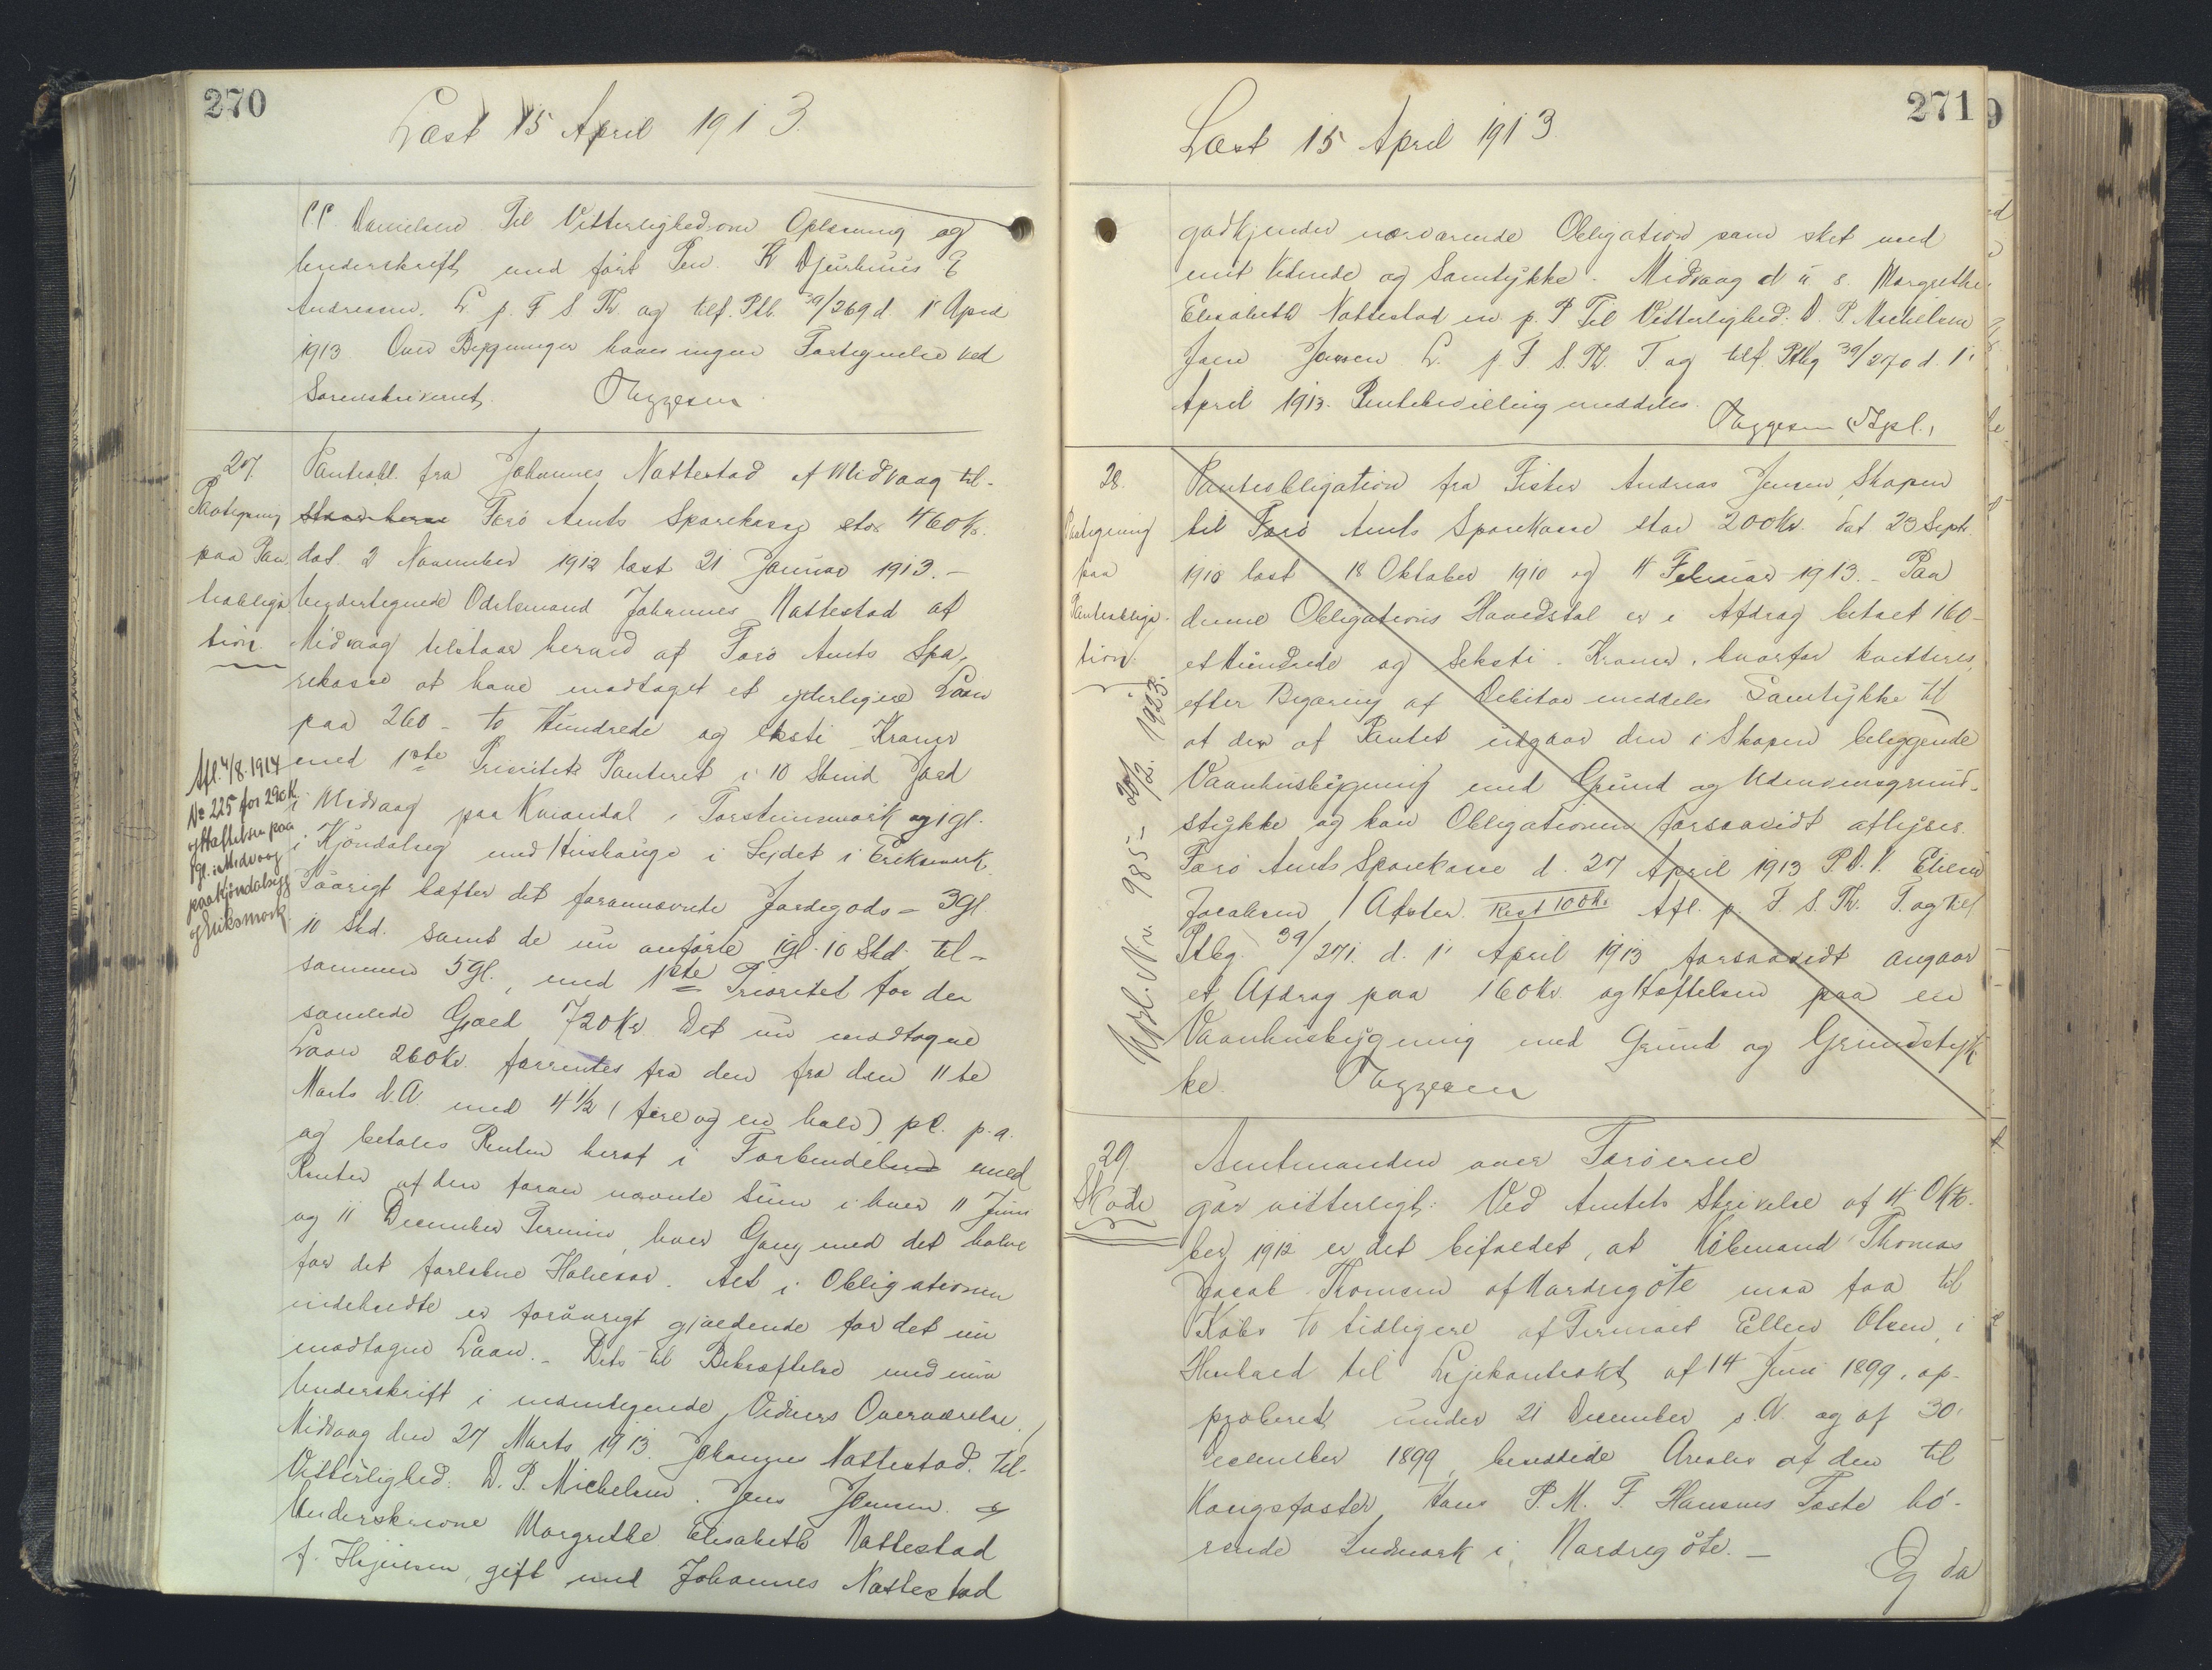 270
Læst 15 April 1913.
P.P. Danielsen Til Vitterlighed om Oplæsning og
Underskrift med ført Pen. K Djurhuus E
Andreasen. L p. F S Th og tilf. Ptb. 39/269 d 15 April
1913 Over Bygninger haves ingen Fortegnelse ved
Sorenskriveriet. Tryggesen
27.
Paategning
paa Pan-
teobliga
tion.
Panteobl. fra Johannes Nattestad af Midvaag til-
Færø Amts Sparekasse stor 460 Kr.
dat. 2 November 1912 læst 21 Januar 1913.-
Undertegnede Odelsmand Johannes Nattestad af
Midvaag tilstaar herved af Færø Amts Spa-
rekasse at have modtaget et yderligere Laan
paa 260 - to Hundrede og seksti Kroner
med 1ste Prioritets Panteret i 10 Skind Jord
i Midvaag paa Kviandal i Torsteinsmørk og 1 gl.
i Kjøndalseg med Hushauge i Lejdet i Eriksmørk.
Iøvrigt hæfter det forannævnte Jordegods = 3 gl.
10 Skd. samt de nu anførte 1 gl. 10 Skd. til-
sammen 5 gl., med 1ste Prioritet for den
samlede Gæld 720 Kr. Det nu modtagne
Laan 260 Kr. forrentes fra den fra den 11te
Marts d.A. med 4½ (fire og en halv) pC. p.a.
og betales Renten heraf i Forbindelse med
Renten af den foran nævnte Sum i hver 11 Juni
og 11 December Termin, hver Gang med det halve
for det forløbne Halvaar. Alt i Obligationen
indeholdte er forøvrigt gjældende for det nu
modtagne Laan.- Dets til Bekræftelse med min
Underskrift i medundertegnede Vidners Overværelse.
Midvaag den 27 Marts 1913. Johannes Nattestad. Til
Vitterlighed: D. P. Michelsen. Jens Jensen.
Underskrevne Margrethe Elisabeth Nattestad
f. Hejnesen, gift med Johannes Nattestad
Afl. 4/8. 1914
No 225 for 290 K.
og Hæftelsen paa
1 gl. i Midvaag
paa Kjøndalsegg
og Eriksmørk.
271
Læst 15 April 1913.
godkjender nærværende Obligation som sket med
mit Vidende og Samtykke. Midvaag d u s. Margrethe
Elisabeth Nattestad m p. P Til Vitterlighed: D. P. Michelsen
Jens Jensen L. p. F. S. Th. T og tilf. Ptbg 39/270 d. 15
April 1913. Rentebevilling meddeles. Tryggesen
28.
Paategning
paa
Panteobliga-
tion.
Panteobligation fra Fisker Andreas Jensen, Skopen
til Færø Amts Sparekasse stor 200 Kr. dat 23 Sept.
1910 læst 18 Oktober 1910 og 4 Februar 1913.- Paa
denne Obligations Hovedstol er i Afdrag betalt 160-
et Hundrede og Seksti - Kroner, hvorfor kvitteres,
efter Begæring af Debitor meddeles Samtykke til
at der af Pantet udgaar den i Skopen beliggende
Vaanhusbygning med Grund og Udenomsgrund-
stykke og kan Obligationen forsaavidt aflyses.
Færø Amts Sparekasse d. 27 April 1913 P.D.V. Ellen
Jacobsen / Rest 100 Kr. Afl. p. F. S. Th. T. og tilf
Ptbg. 39/271. d. 15 April 1913 forsaavidt angaar
et Afdrag paa 160 Kr. og Hæftelsen paa en
Vaanhusbygning med Grund og Grundstyk
ke. Tryggesen
Udsl. Nr. 985 - 1923.
29
Skøde
Amtmanden over Færøerne
gør vitterligt: Ved Amtets Skrivelse af 4 Okto-
ber 1912 er det bifaldet, at Købmand Thomas
Jacob Thomsen af Nordregøte maa faa til
Købs to tidligere af Firmaet Ellen Olsen, i
Henhold til Lejekontrakt af 14 Juni 1899, ap-
proberet under 21 December s. A. og af 30.
December 1899, benyttede Arealer af den til
Kongsfæster Hans P. M. F. Hansens Fæste hø-
rende Indmark i Nordregøte. -
Og da